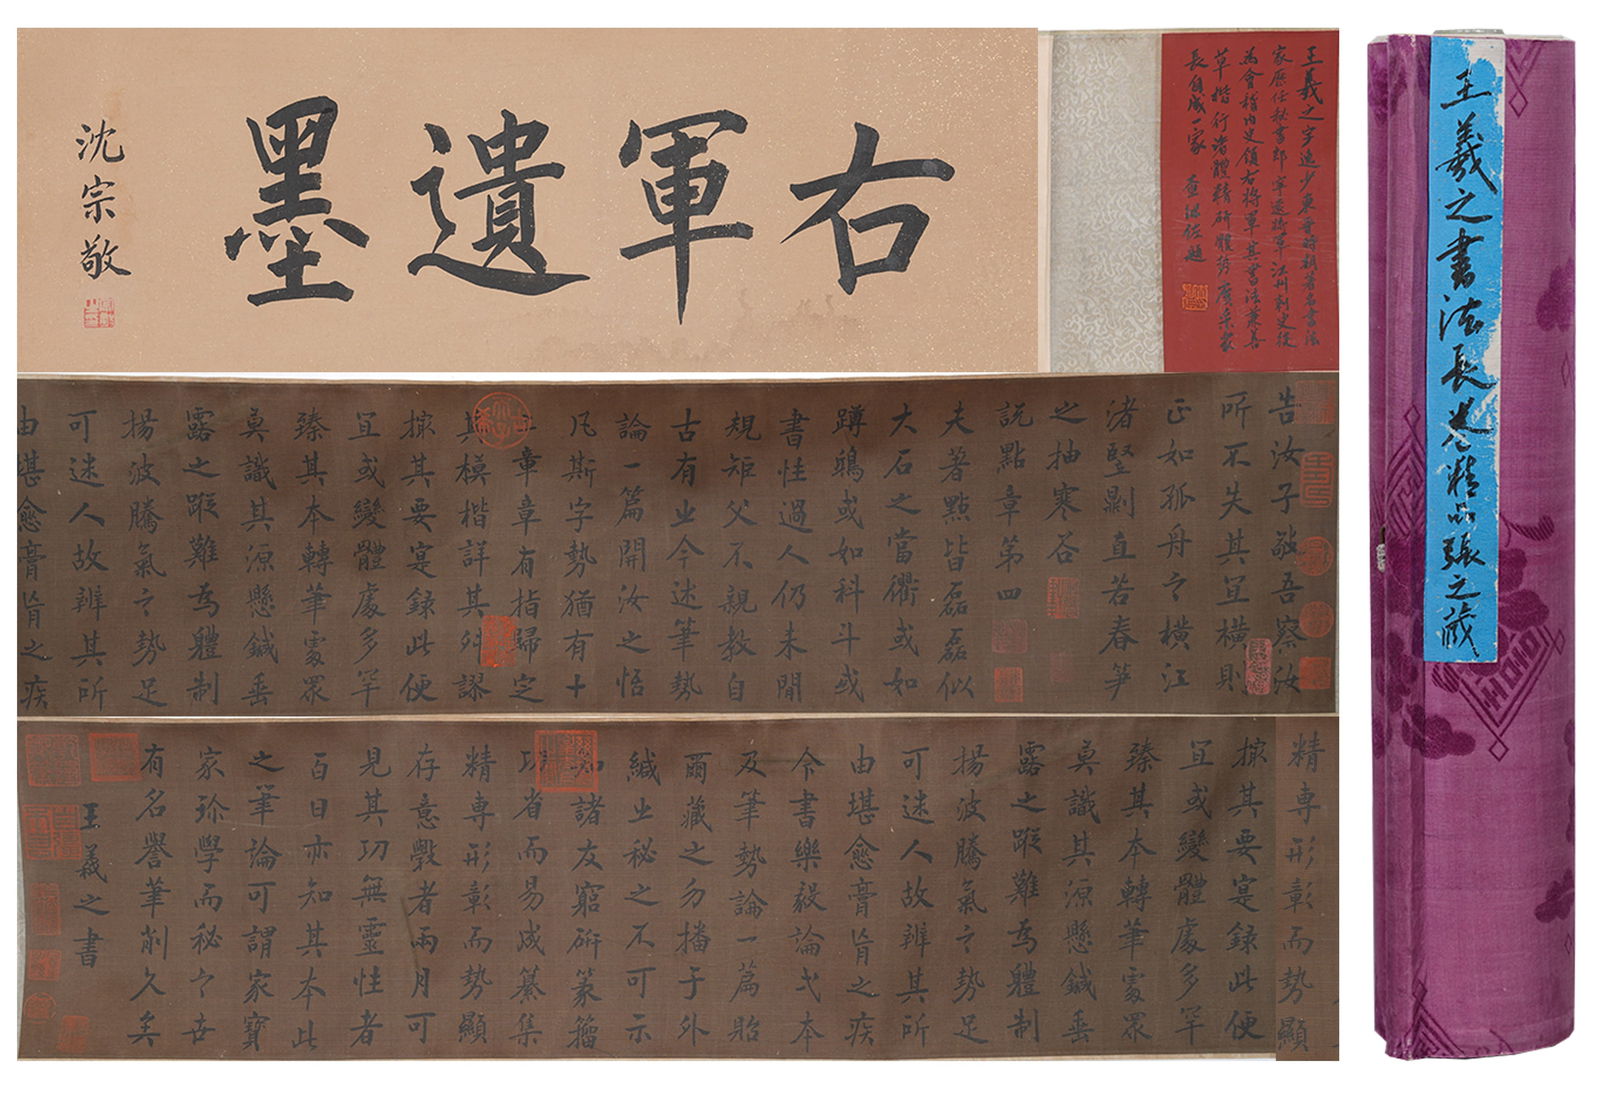 王羲之書法長卷精品張之藏
王羲之字逸少東晉時期著名書法
家歷任秘書郎寧遠將軍江州刺史後
為會稽內史領右將軍其書法兼善
草楷行諸體精研體勢廣采眾
長自成一家 查继佐題
右軍遺墨
沈宗敬
告汝子敬吾察汝
所不失其宜橫則
正如孤舟之橫江
渚竪剛直若春笋
之抽寒谷
說點章第四
夫著點皆磊磊似
大石之當衢或如
蹲鴟或如科斗或
書性過人仍未閒
規矩父不親教自
古有㞢今述筆勢
論一篇開汝之悟
凡斯字勢猶有十
章章有指歸定
其模楷詳其舛謬
撿其要寔録此便
宜或變體處多罕
臻其本轉筆處眾
莫識其源懸鍼垂
露之蹤難為體制
揚波騰氣之勢足
可迷人故辨其所
由堪愈膏肓之疾
精專形彰而勢顯
撿其要寔録此便
宜或變體處多罕
臻其本轉筆處眾
莫識其源懸鍼垂
露之蹤難為體制
揚波騰氣之勢足
可迷人故辨其所
由堪愈膏肓之疾
今書樂毅論弌本
及筆勢論一篇貽
爾藏之勿播于外
緘㞢秘之不可示
知諸友窮研篆籀
功省而易成纂集
精專形彰而勢顯
存意數者兩月可
見其功無靈性者
百日亦知其本此
之筆論可謂家寶
家珍學而秘之世
有名譽筆削久矣
王羲之書